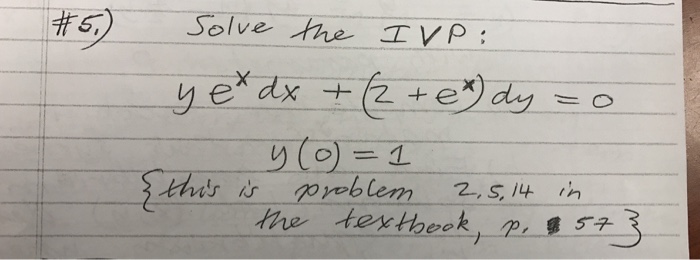 #5.) Solve the IVP:
y eˣ dx + (2 + eˣ) dy = 0
y(0) = 1
{this is problem 2.5.14 in
the textbook, p. 57}